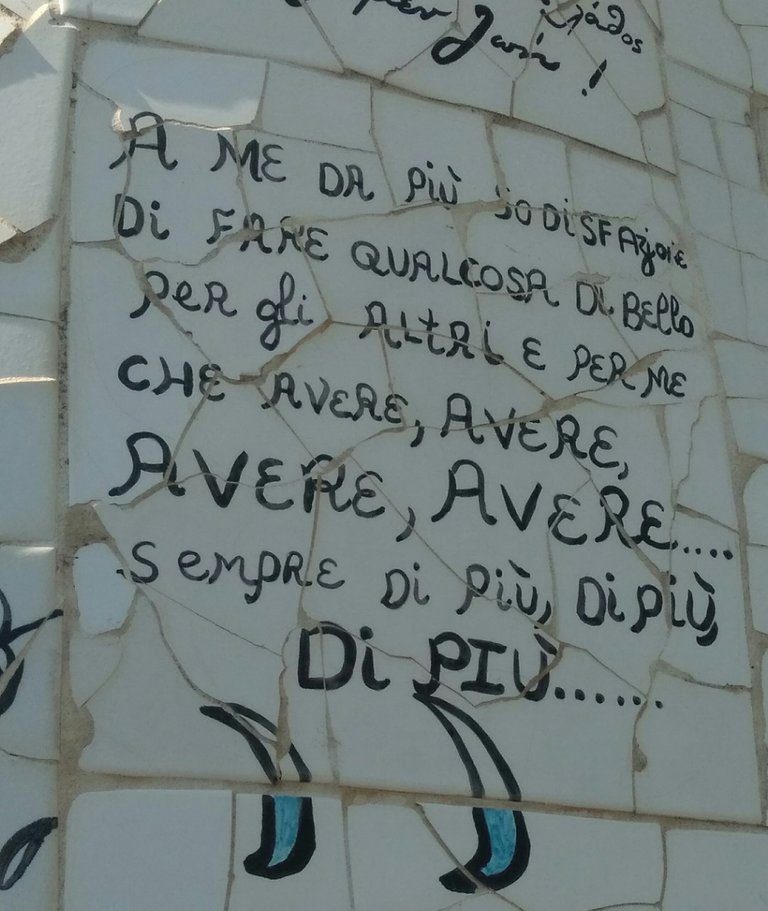 per Juan!
A ME DA PIÙ SODiSFAzioiE
Di FARE QUALCOSA Di BEllo
PER gli ALtRi E PER ME
CHE AVERE, AVERE,
AVERE, AVERE....
SEMPRE Di Più, Di PIÙ,
Di PIÙ.......